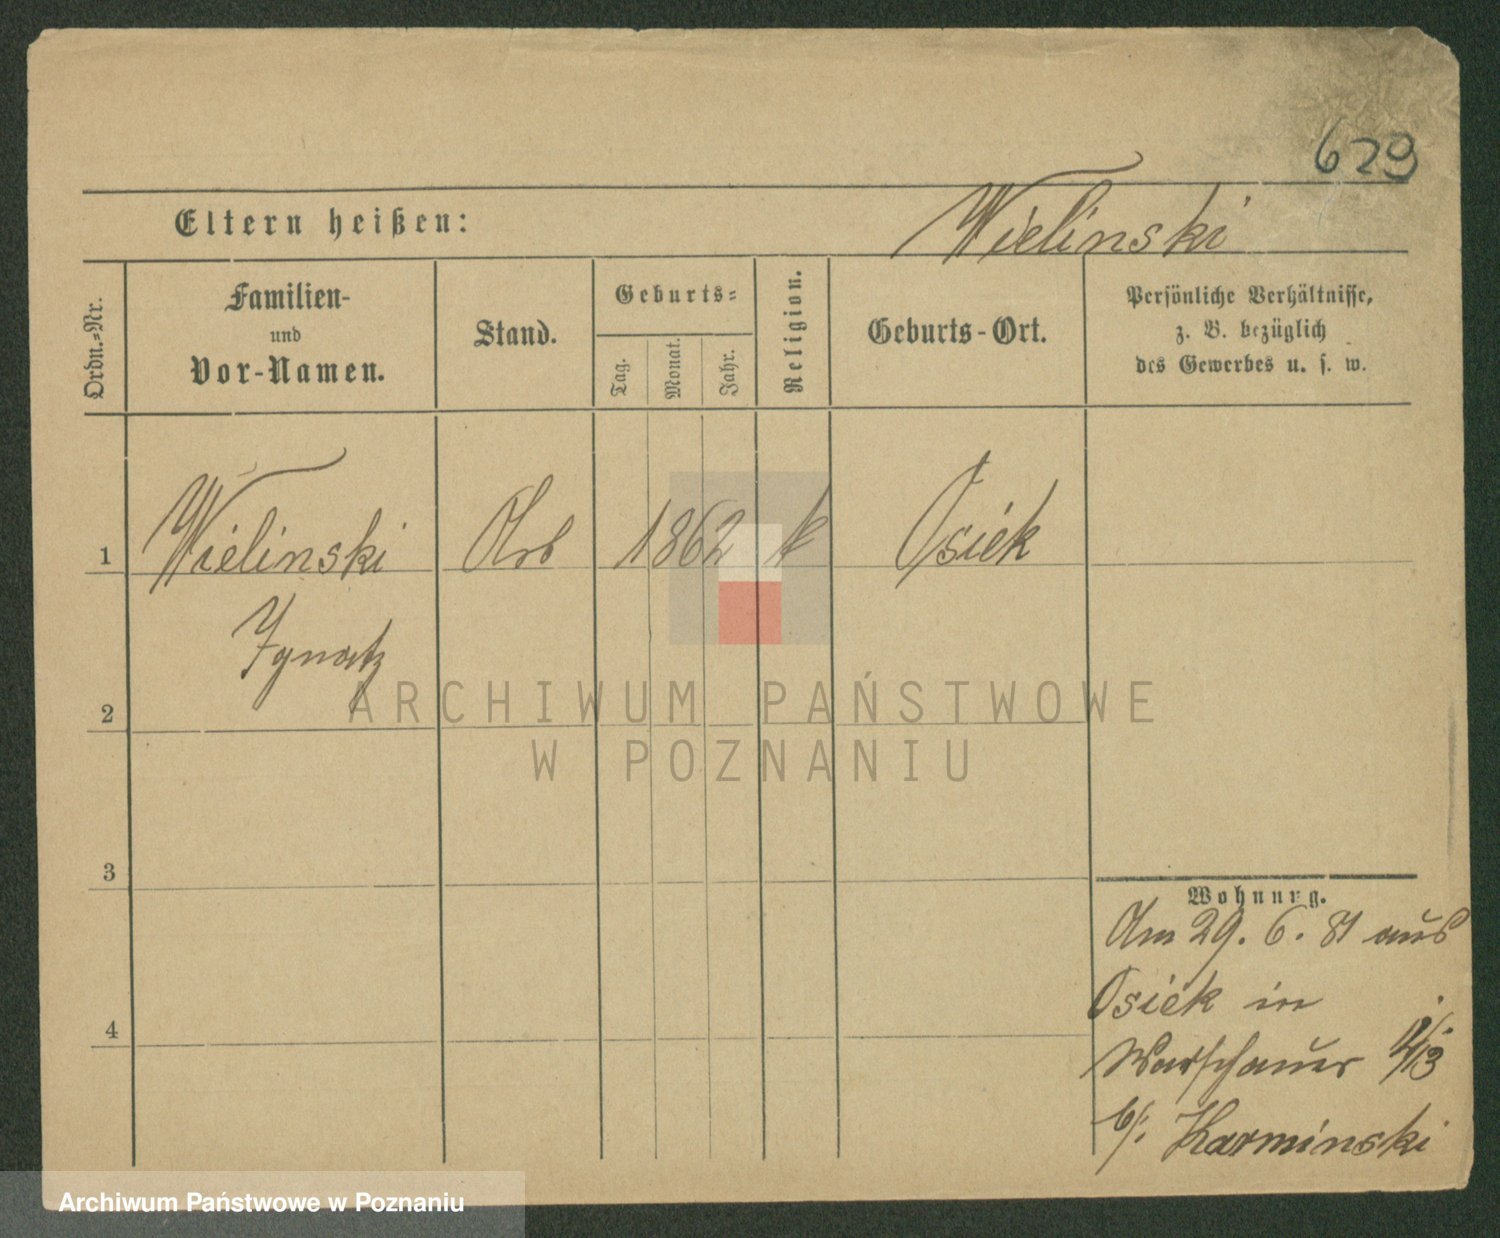 629
Eltern heißen: Wielinski
Ordn.=Nr.
Familien-
und
Vor-Namen.
Stand.
Geburts=
Tag.
Monat.
Jahr.
Religion.
Geburts-Ort.
Persönliche Verhältnisse,
z. B. bezüglich
des Gewerbes u. s. w.
1 Wielinski Arb 1862 k Osiek
Ignatz
2
3
4
Wohnung.
Am 29. 6. 81 aus
Osiek in
Warschauer
b/: Karminski
ARCHIWUM PAŃSTWOWE
W POZNANIU
Archiwum Państwowe w Poznaniu